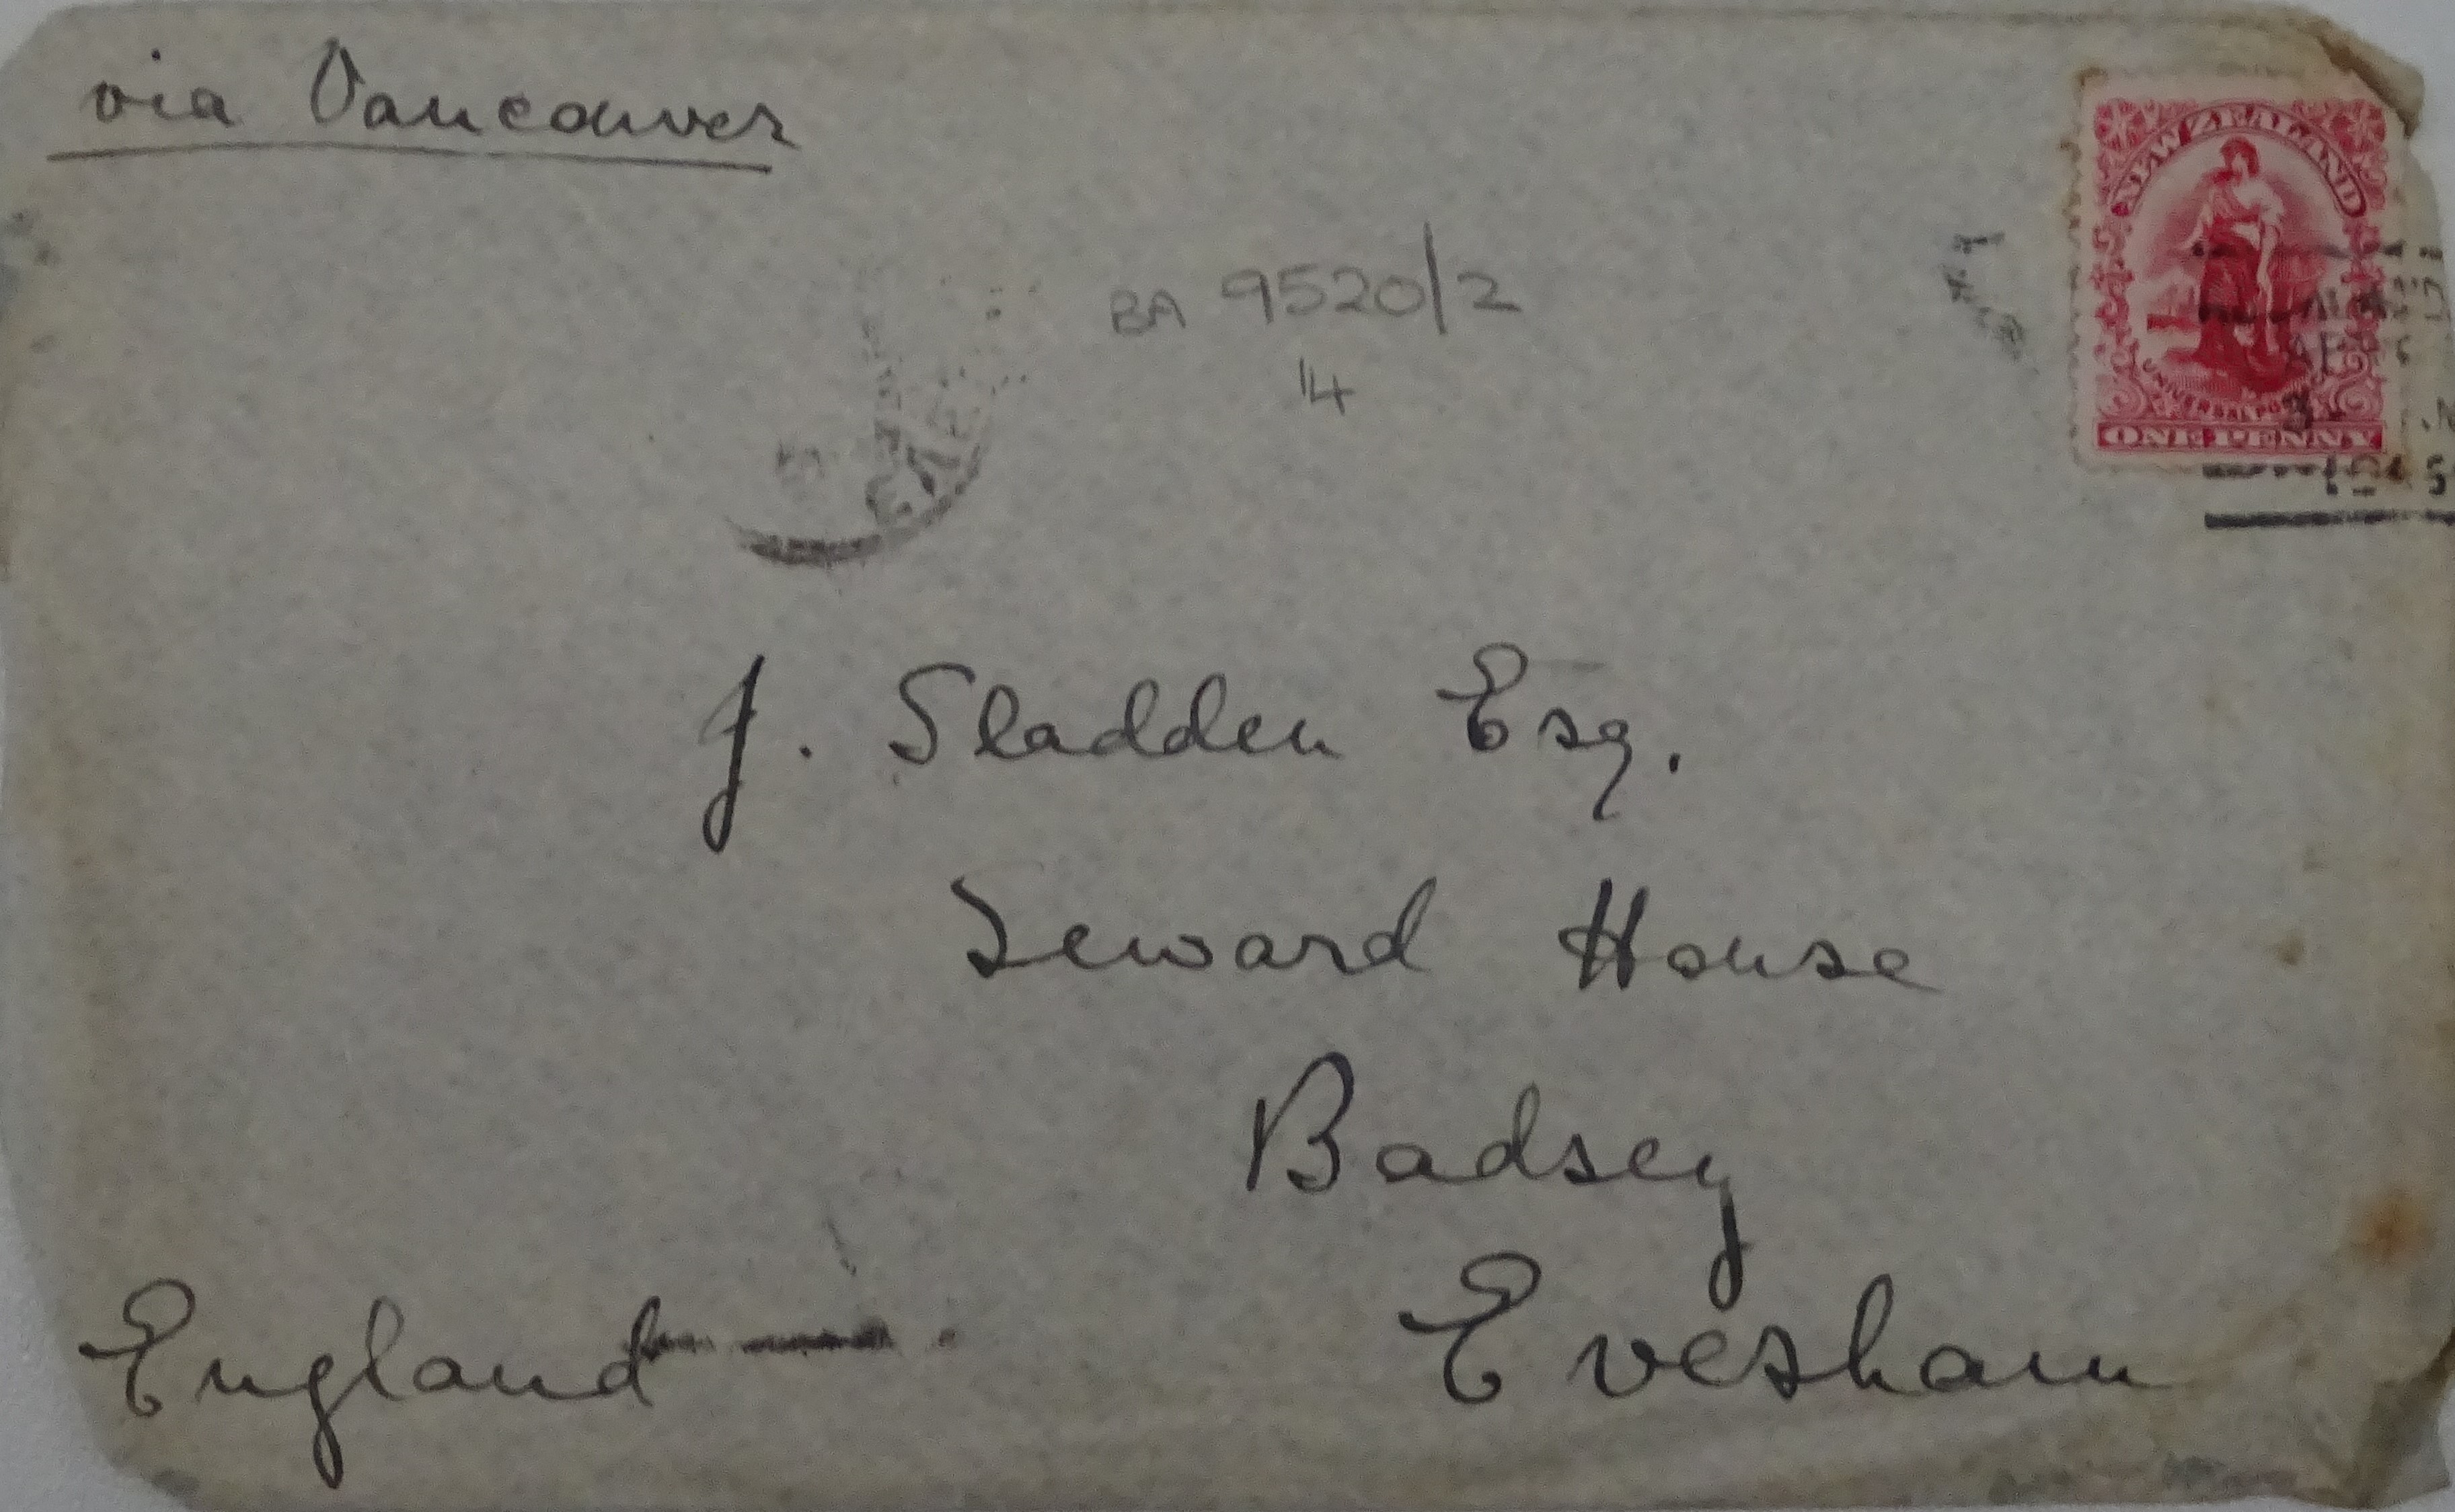 via Vancouver
NEW ZEALAND
UNIVERSAL
ONE PENNY
BA 9520/2
14
J. Sladden Esq.
Seward House
Badsey
Evesham
England